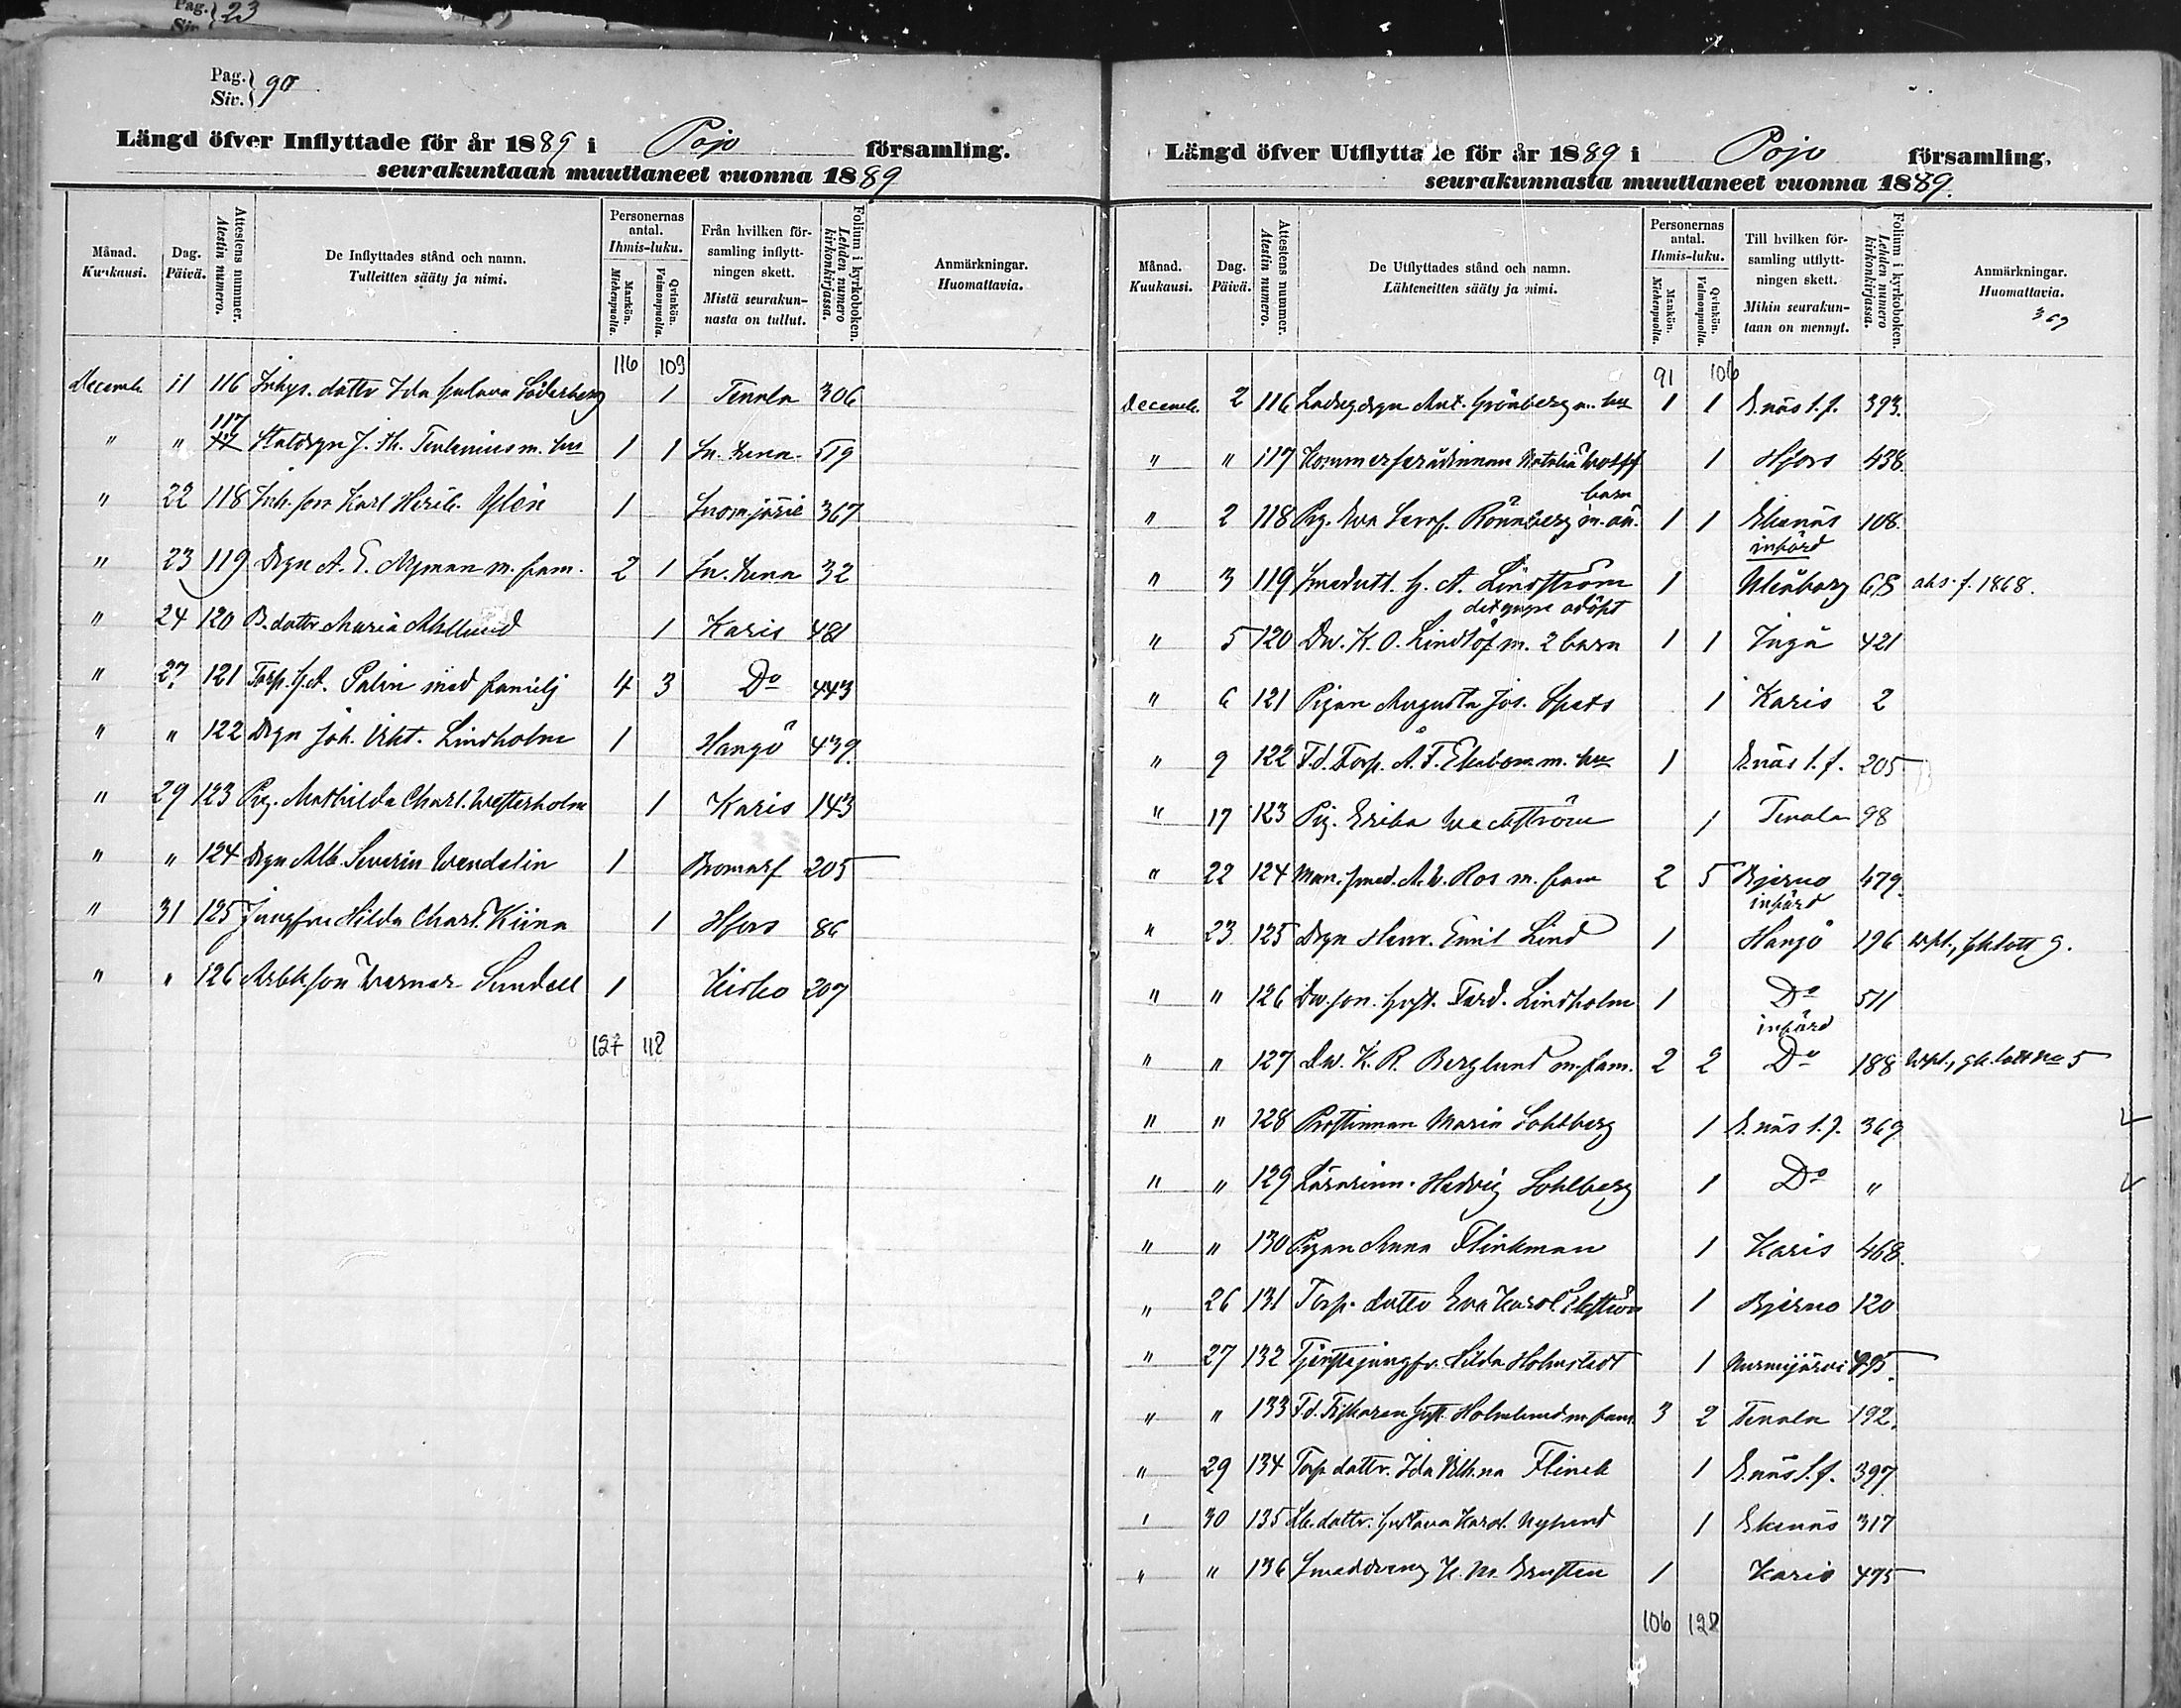 Pag. 23
Siv.
Pag. 90
Siv.
Längd öfver Inflyttade för år 1889 i Pojo församling.
seurakuntaan muuttaneet vuonna 1889
Månad. Kuukausi.
Dag. Päivä.
Attestens nummer. Atestin numero.
De Inflyttades stånd och namn. Tulleitten sääty ja nimi.
Personernas antal. Ihmis-luku.
Mankön. Miehenpuolta.
Qvinkön. Vaimonpuolta.
Från hvilken församling inflyttningen skett. Mistä seurakunnasta on tullut.
Folium i kyrkoboken. Lehden numero kirkonkirjassa.
Anmärkningar. Huomattavia.
116 109
Decemb. 11 116 Inhys. dottr Ida Gustava Söderberg 1 Tenala 306
" " 117 Statdrgn J. Th. m. hu 1 1 Sn. Lena 519
" 22 118 Inh. son Karl Henrik 1 367
" 23 119 Drgn A. E. Nyman m. fam. 2 1 Sn. Lena 32
" 24 120 B. dottr Maria Ahllund 1 Karis 481
" 27 121 Torp. G. A. Palin med familj 4 3 Do 443
" " 122 Drgn Joh. Vikt. Lindholm 1 Hangö 439.
" 29 123 Pig. Mathilda Charl. Westerholm 1 Karis 143
" " 124 Drgn Alb. Severin Wendelin 1 Bromarf 205
" 31 125 Jungfru Hilda Charl. Kiina 1 Hfors 86
" " 126 Arbk. son Werner Sundell 1 Kisko 207
127 118
Längd öfver Utflyttade för år 1889 i Pojo församling,
seurakunnasta muuttaneet vuonna 1889.
Månad. Kuukausi.
Dag. Päivä.
Attestens nummer. Atestin numero.
De Utflyttades stånd och namn. Lähteneitten sääty ja nimi.
Personernas antal. Ihmis-luku.
Mankön. Miehenpuolta.
Qvinkön. Vaimonpuolta.
Till hvilken församling utflyttningen skett. Mihin seurakuntaan on mennyt.
Folium i kyrkoboken. Lehden numero kirkonkirjassa.
Anmärkningar. Huomattavia.
369
91 106
Decemb. 2 116 Ladugdrgn Ant. Grönberg m. hu 1 1 E.näs l.f. 393.
" " 117 Kommerserådinnan Natalia Wolff 1 Hfors 438
barn
" 2 118 Pig. Eva Seraf. Rönnberg m. oä. 1 1 Ekenäs 108.
införd
" 3 119 Smedutl. G. A. Lindström 1 Uleåborg 68 abs. f. 1868.
det yngre adopt
" 5 120 Dw. K. O. Lindlöf m. 2 barn 1 1 Ingå 421
" 6 121 Pigan Augusta Jos. Spets 1 Karis 2
" 9 122 F.d. Torp. A. F. Ekebom m. hu 1 E.näs l.f. 205
" 17 123 Pig. Erika Weckström 1 Tenala 98
" 22 124 Man. smed. A. W. Ros m. fam 2 5 Bjerno 479.
införd
" 23 125 Drgn Henr. Emil Lind 1 Hangö 196
" " 126 Dw. son. Gust. Ferd. Lindholm 1 Do 511
införd
" " 127 Dw. K. R. Berglund m. fam. 2 2 Do 188
" " 128 Prostinnan Maria Sohlberg 1 E.näs l.f. 369
" " 129 Lärarinn. Hedvig Sohlberg 1 Do "
" " 130 Pigan Anna Flinkman 1 Karis 468.
" 26 131 Torp. dottr Eva Karol. Ekström 1 Bjerno 120
" 27 132 Tjenstejungfr. Hilda Holmstedt 1 Nurmijärvi 495.
" " 133 F.d. Fiskaren Gust. Holmlund m fam. 3 2 Tenala 192.
" 29 134 Torp dottr. Ida Wilh:na Flinck 1 E.näs l.f. 397
" 30 135 dottr. Gustava Karol. Nylund 1 Ekenäs 317
" " 136 Smeddreng K. M. Grusten 1 Karis 475
106 128